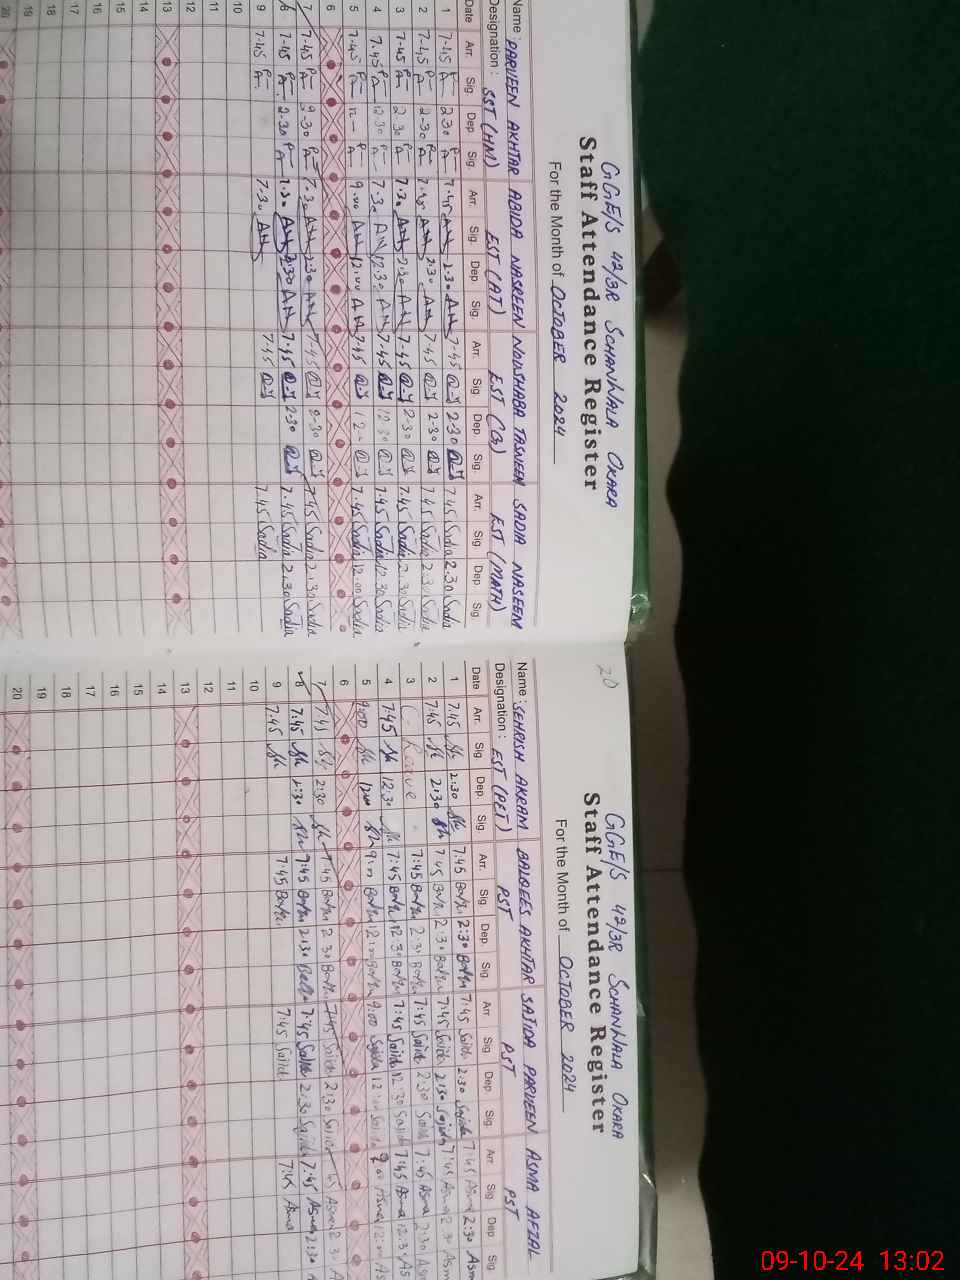 GGE/S 42/3R SOHANWALA OKARA
Staff Attendance Register
For the Month of OCTOBER 2024
Name: PARVEEN AKHTAR ABIDA NASREEN NOUSHABA TASNEEM SADIA NASEEM
Designation: SST (HM) EST (AT) EST (CB) EST (MATH)
Date Arr. Sig. Dep Sig. Arr. Sig. Dep Sig. Arr. Sig. Dep Sig. Arr. Sig. Dep Sig.
1 7.45 2.30 7.45 2.30 7.45 2.30 7.45 Sadia 2.30 Sadia
2 7.45 2.30 7.45 2.30 7.45 2.30 7.45 Sadia 2.30 Sadia
3 7.45 2.30 7.30 2.30 7.45 2.30 7.45 Sadia 2.30 Sadia
4 7.45 12.30 7.30 12.30 7.45 12.30 7.45 Sadia 12.30 Sadia
5 7.45 12 9.00 12.00 7.45 12 7.45 Sadia 12.00 Sadia
6
7 7.45 2.30 7.30 2.30 7.45 2.30 7.45 Sadia 2.30 Sadia
8 7.45 2.30 7.30 2.30 7.45 2.30 7.45 Sadia 2.30 Sadia
9 7.45 7.30 7.45 7.45 Sadia
10
11
12
13
14
15
16
17
18
19
20
20
GGE/S 42/3R SOHANWALA OKARA
Staff Attendance Register
For the Month of OCTOBER 2024
Name: SEHRISH AKRAM BALQEES AKHTAR SAJIDA PARVEEN ASMA AFZAL
Designation: EST (PET) PST PST PST
Date Arr. Sig Dep. Sig. Arr. Sig Dep. Sig. Arr. Sig Dep Sig. Arr Sig Dep Sig
1 7.45 2:30 7:45 2:30 7:45 Sajida 2:30 Sajida 7:45 Asma 2:30 Asm
2 7:45 2:30 7:45 2:30 7:45 Sajida 2:30 Sajida 7:45 Asma 2:30 Asm
3 Leave 7:45 2:30 7:45 Sajida 2:30 Sajida 7:45 Asma 2:30 Asm
4 7:45 12:30 7:45 12:30 7:45 Sajida 12:30 Sajida 7:45 Asma 12:30 As
5 9:00 12:00 9:00 12:00 9:00 Sajida 12:00 Sajida 9:00 Asma 12:00 As
6
7 7:45 2:30 7:45 2:30 7:45 Sajida 2:30 Sajida 7:45 Asma 2:30 A
8 7:45 2:30 7:45 2:30 7:45 Sajida 2:30 Sajida 7:45 Asma 2:30 A
9 7:45 7:45 7:45 Sajida 7:45 Asma
10
11
12
13
14
15
16
17
18
19
20
09-10-24 13:02